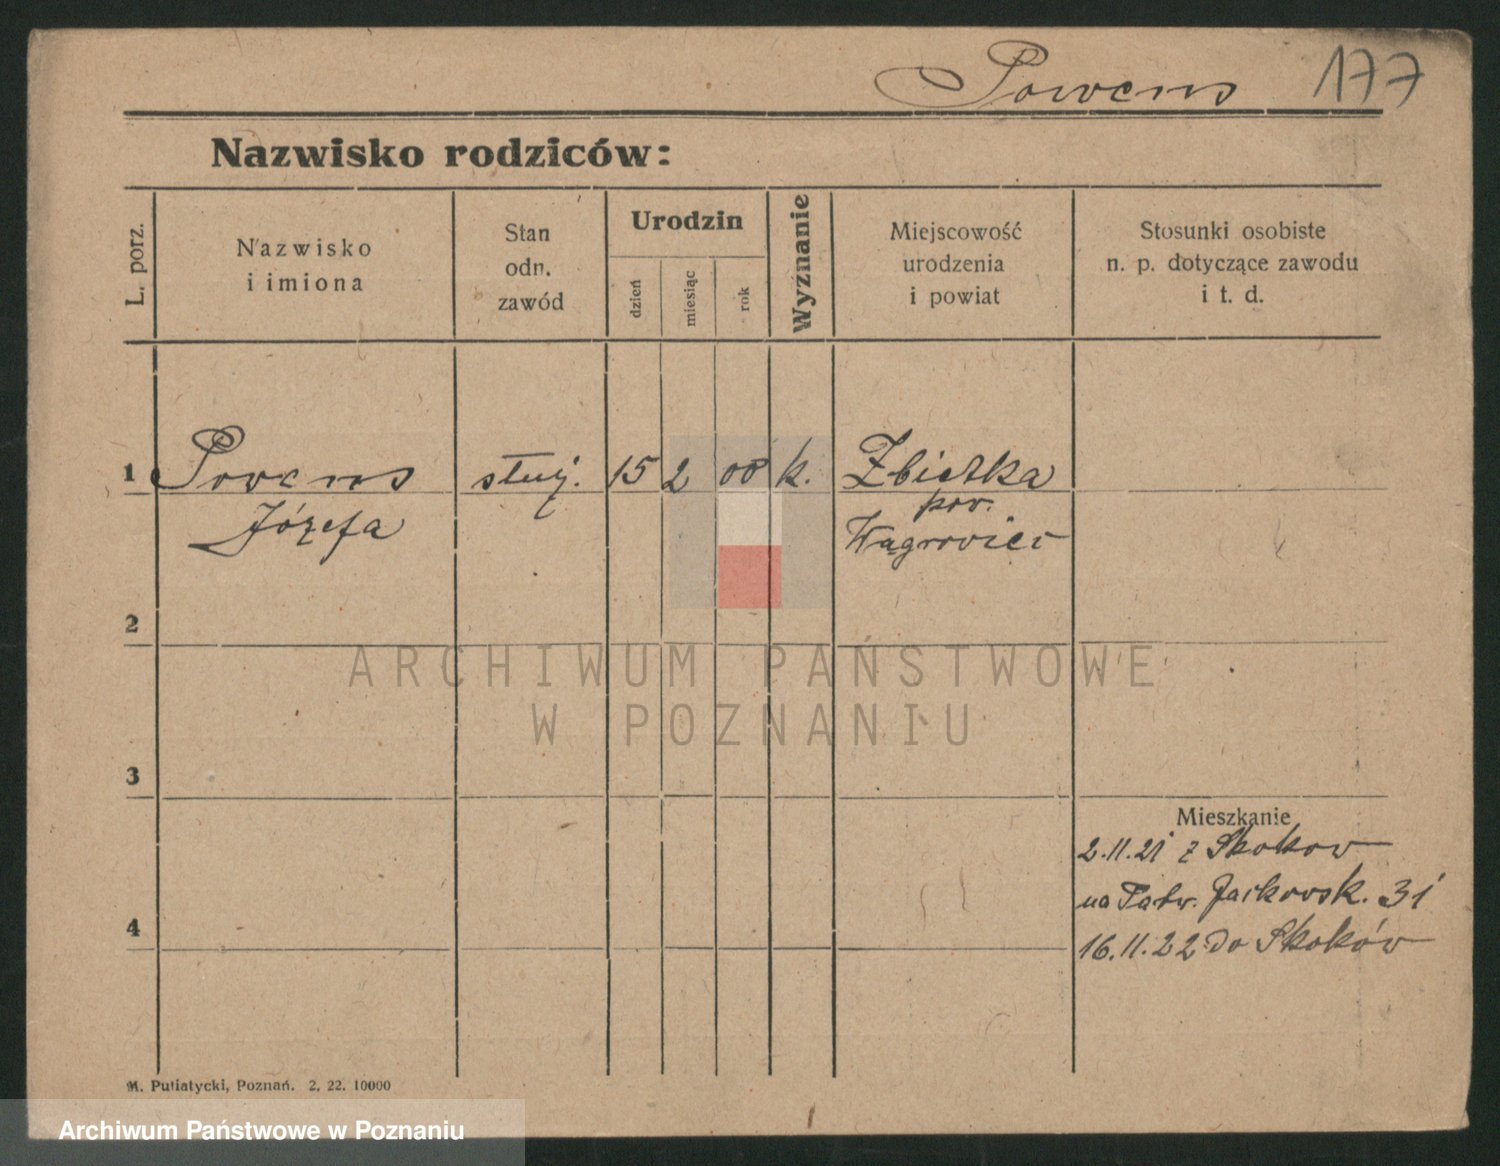 Powens 177
Nazwisko rodziców:
L. porz.
Nazwisko
i imiona
Stan
odn.
zawód
Urodzin
dzień
miesiąc
rok
Wyznanie
Miejscowość
urodzenia
i powiat
Stosunki osobiste
n. p. dotyczące zawodu
i t. d.
1 Powens służ. 15 2 08 k. Zbietka
pow.
Józefa Wągrowiec
2
ARCHIWUM PAŃSTWOWE
W POZNANIU
3
Mieszkanie
2.11.21 z Skokow
na Jackowsk. 31
4
16.11.22 do Skoków
M. Putiatycki, Poznań. 2. 22. 10000
Archiwum Państwowe w Poznaniu